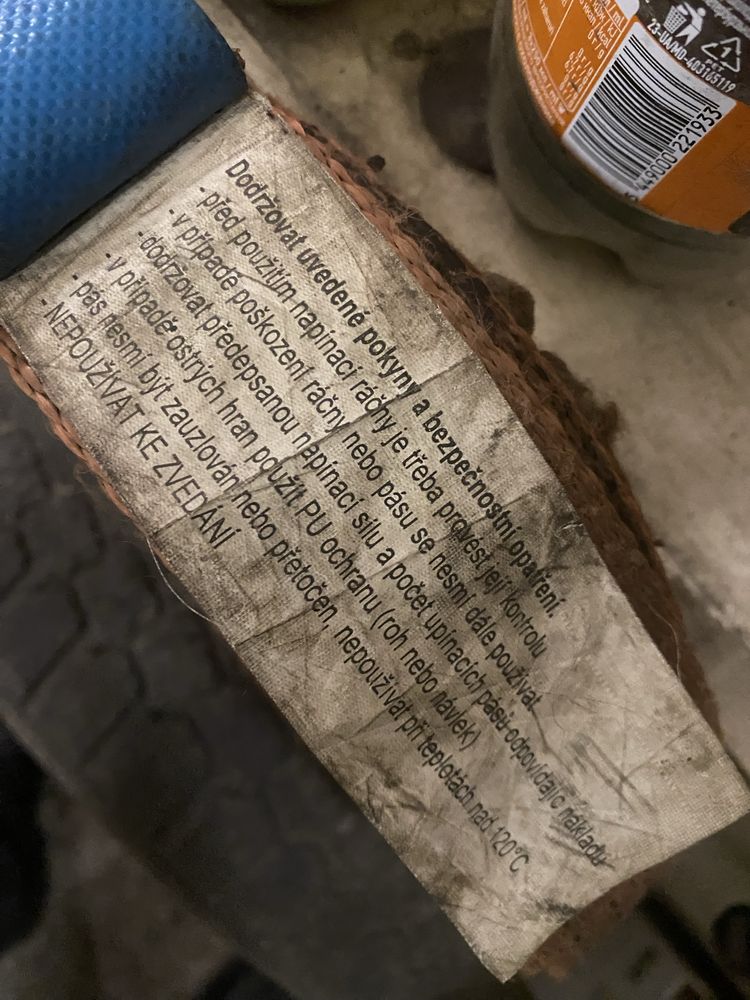 Dodržovat uvedené pokyny a bezpečnostní opatření.
- před použitím napínací ráčny je třeba provést její kontrolu
- v případě poškození ráčny nebo pásu se nesmí dále používat
- dodržovat předepsanou napínací sílu a počet upínacích pásů odpovídajíc nákladu
- v případě ostrých hran použít PU ochranu (roh nebo návlek)
- pás nesmí být zauzlován nebo přetočen, nepoužívat při teplotách nad 120°C
- NEPOUŽÍVAT KE ZVEDÁNÍ
23-UA/MD-403165119
PET
1
449000 221933